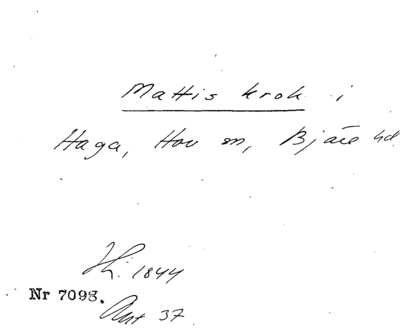 Mattis krok i
Haga, Hov sn, Bjäre hd
1844
Nr 7098.
37